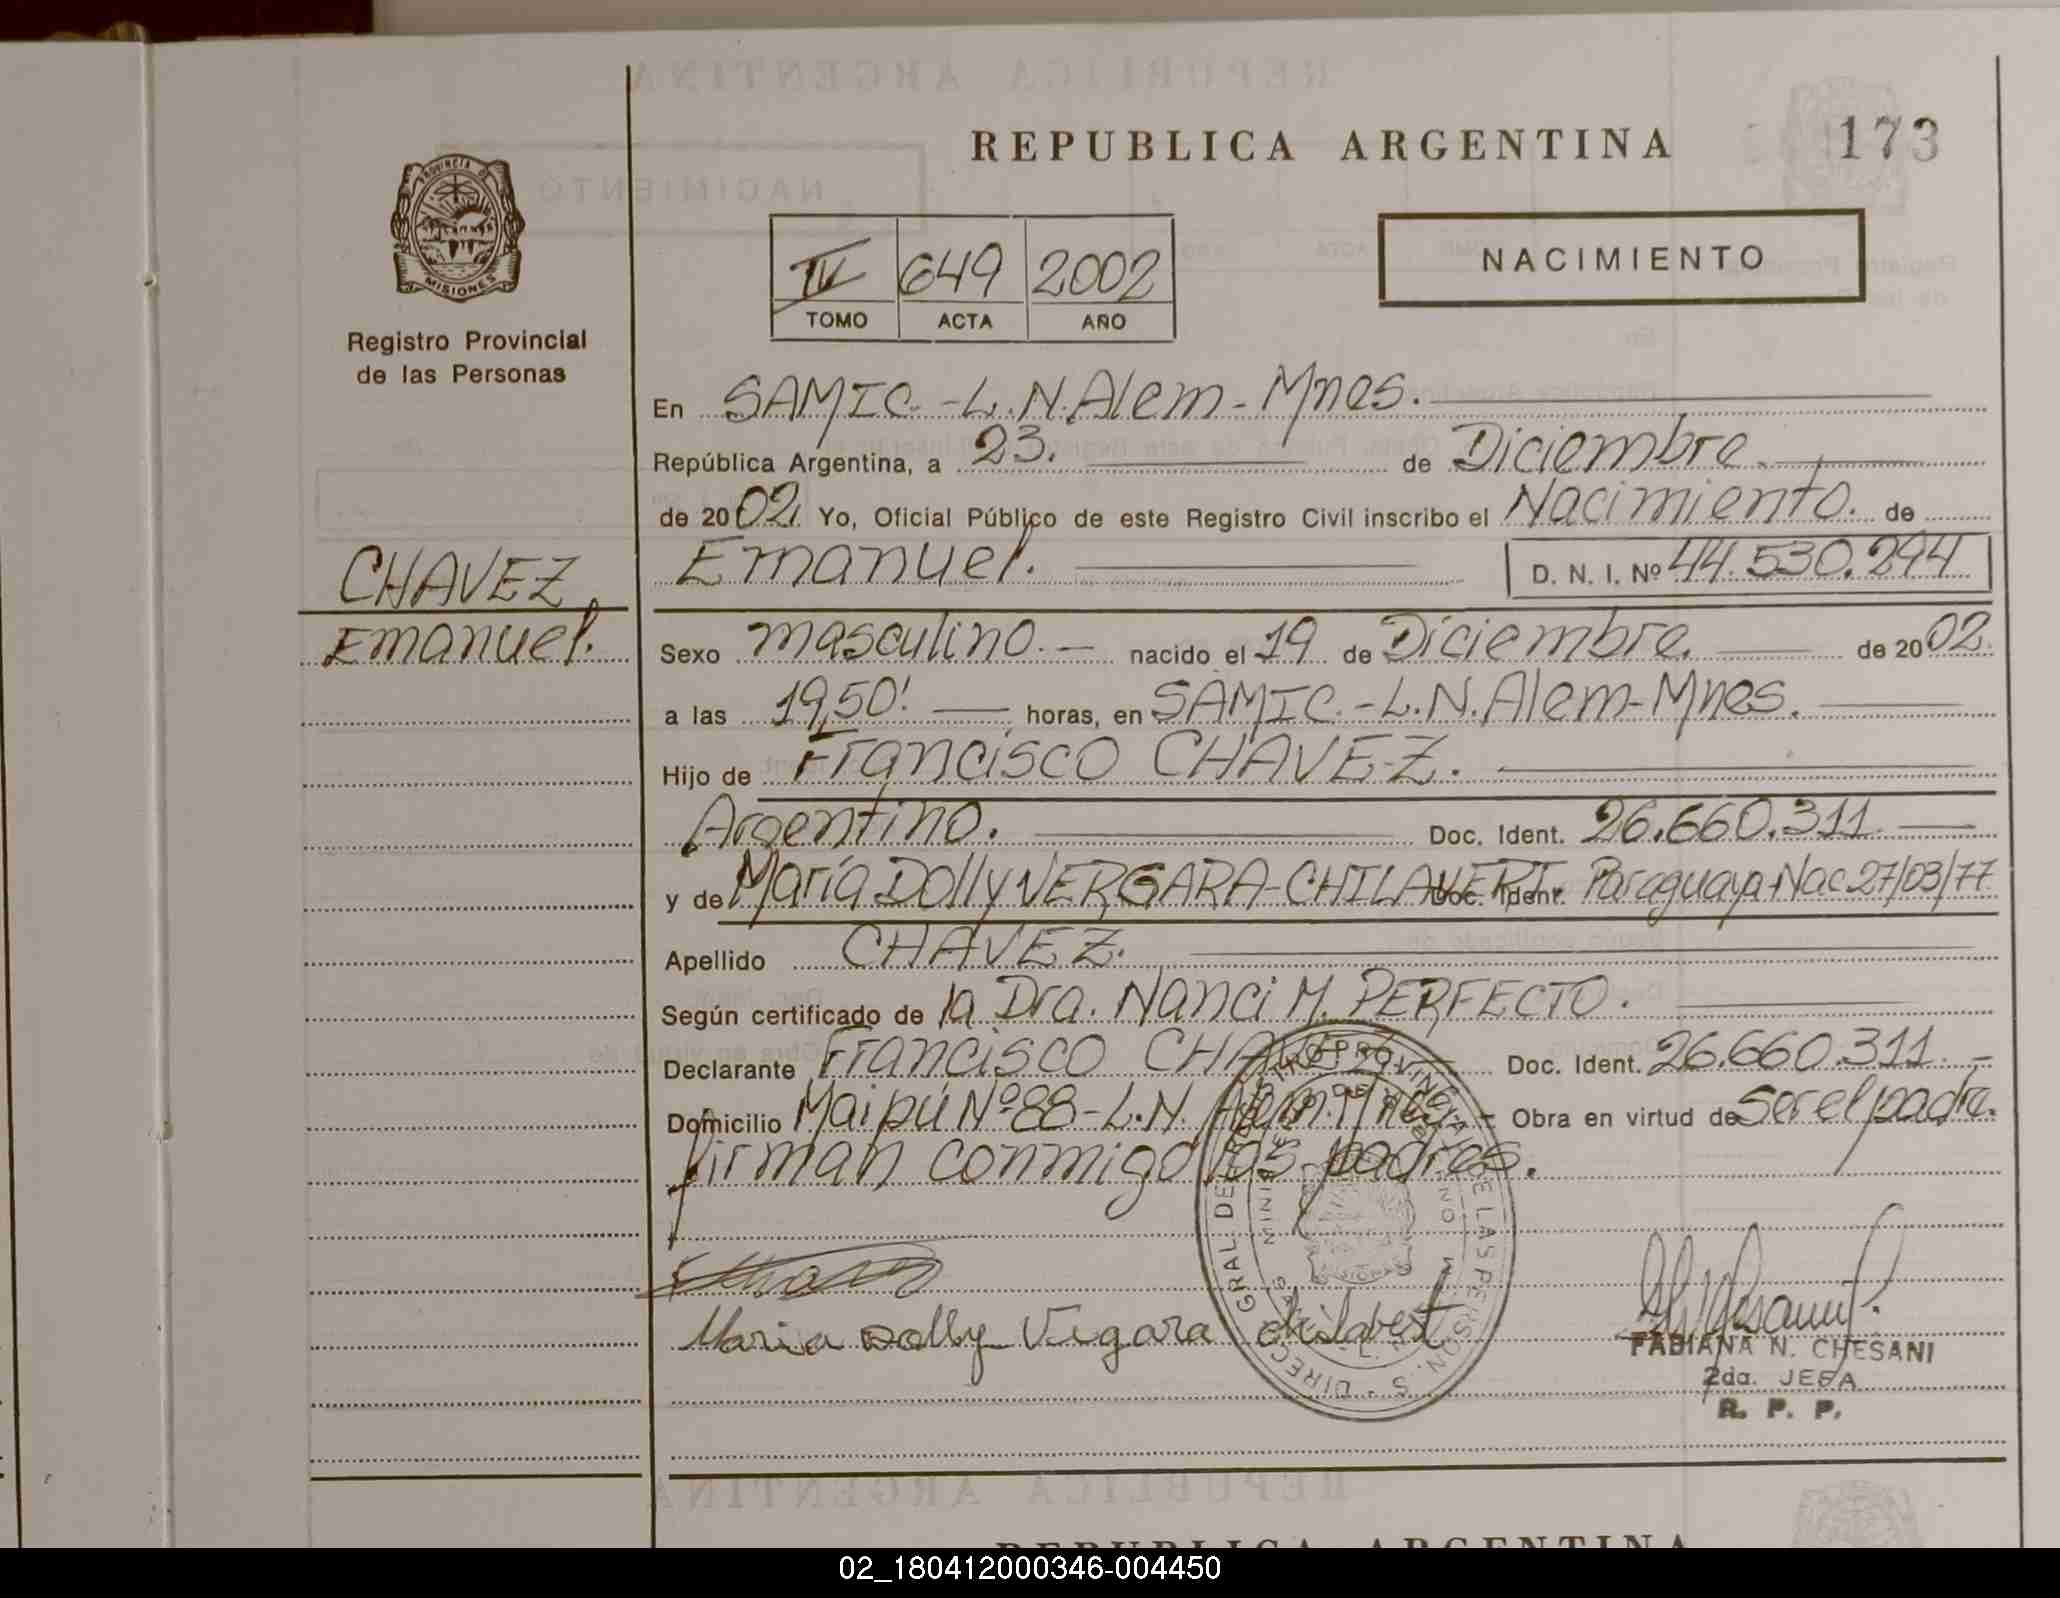 REPUBLICA ARGENTINA 173
PROVINCIA DE
MISIONES
Registro Provincial
de las Personas
IV 649 2002
TOMO ACTA AÑO
NACIMIENTO
En SAMIC.-L.N.Alem-Mnes.
República Argentina, a 23. de Diciembre
de 2002. Yo, Oficial Público de este Registro Civil inscribo el Nacimiento. de
CHAVEZ,
Emanuel.
Emanuel. D. N. I. Nº 44.530.294
Sexo masculino.- nacido el 19 de Diciembre. de 2002.
a las 19,50' horas, en SAMIC.-L.N.Alem-Mnes.
Hijo de Francisco CHAVEZ.
Argentino. Doc. Ident. 26.660.311
y de María Dolly VERGARA-CHILAVERT Doc. Ident. Paraguaya Nac 27/03/77
Apellido CHAVEZ.
Según certificado de la Dra. Nanci M. PERFECTO.
Declarante Francisco CHAVEZ Doc. Ident. 26.660.311.-
Domicilio Maipú Nº88-L.N. Alem. Mnes - Obra en virtud de Ser el padre.
firman conmigo los padres.
Maria Dolly Vergara Chilabert
FABIANA N. CHESANI
2da. JEFA
R. P. P.
REPUBLICA ARGENTINA
02_180412000346-004450